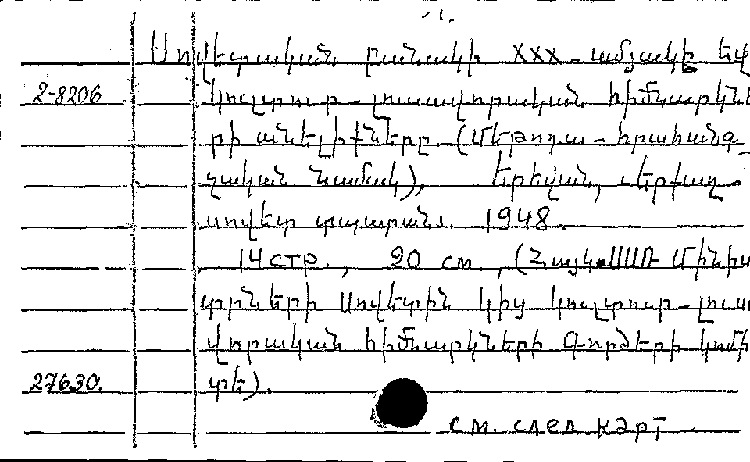 Սովետական բանակի XXX-ամյակը եվ
2-8206 կուլտուր-լուսավորական հիմնարկնե
րի անելիքները. (Մեթոդա-հրահանգ_
չական նամակ), Երեվան, պերֆաղ.
սովետ տպարան. 1948.
14 стр., 20 см., (Հայկ. ՍՍՌ Մինիս
տրների Սովետին կից կուլտուր-լուսա
վորական հիմնարկների Գործերի կոմի
27630. տե).
см. след карт